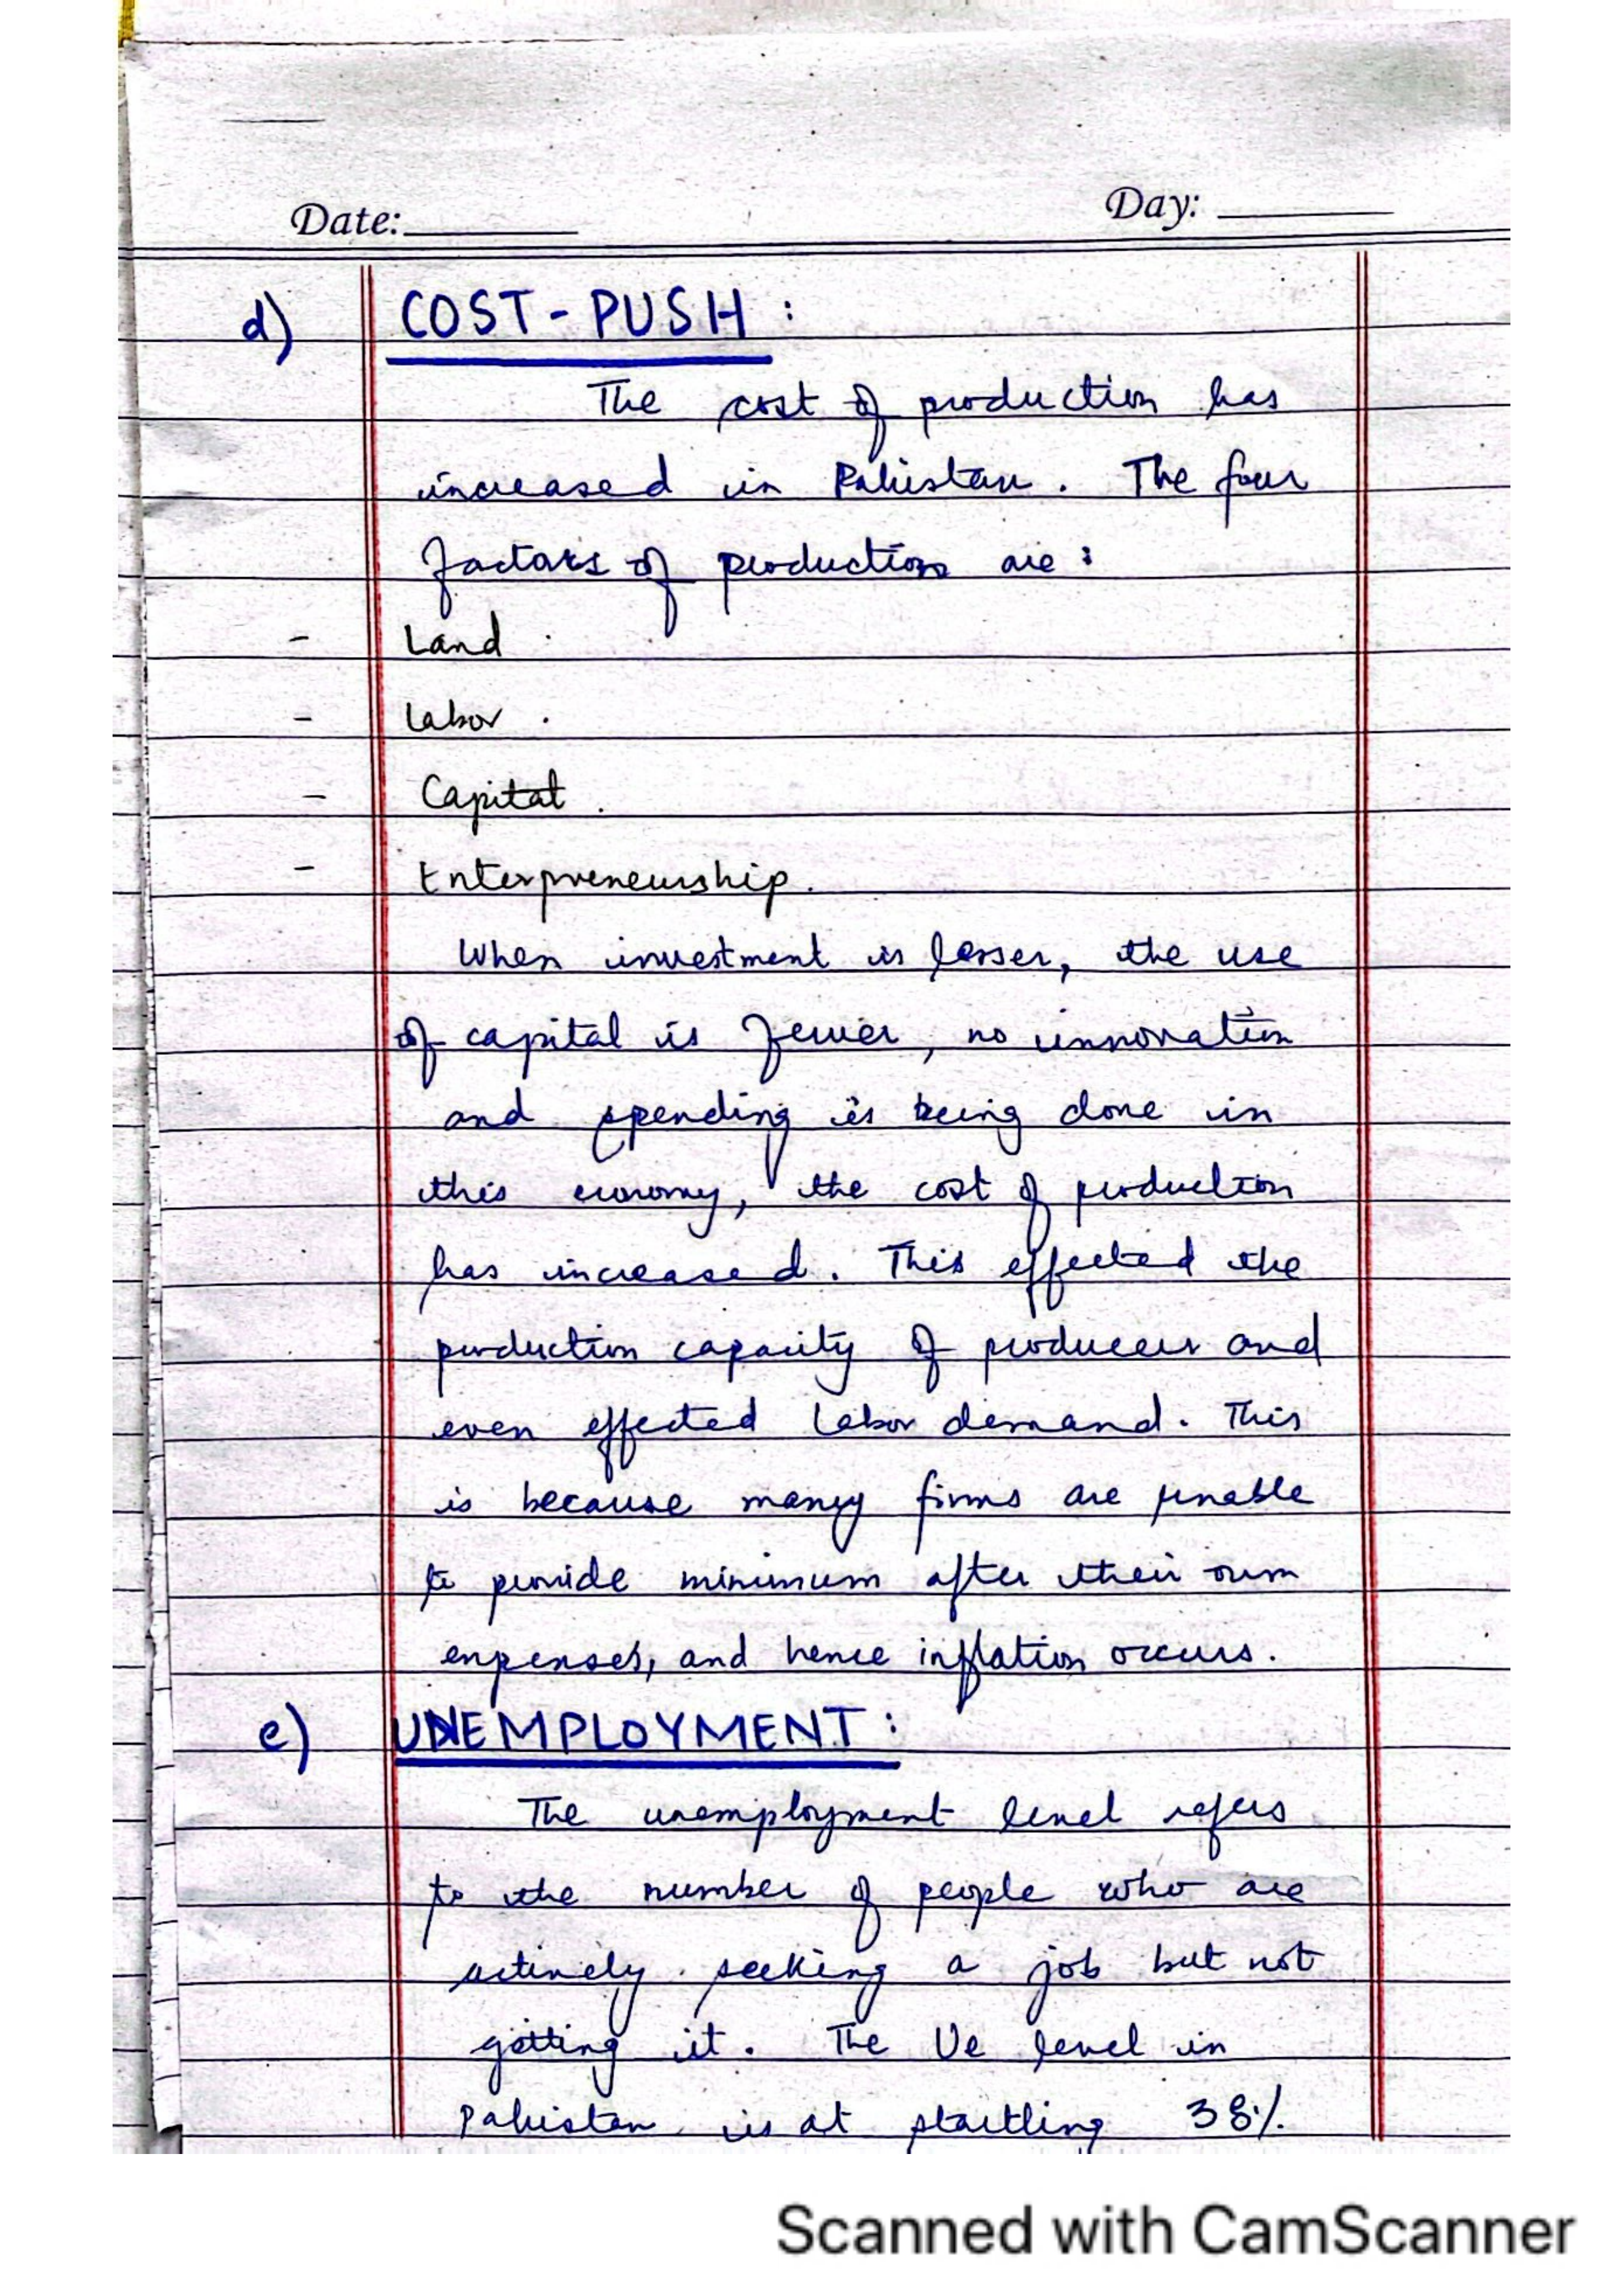 Date:
Day:
d) COST-PUSH :
The cost of production has
increased in Pakistan. The four
factors of production are :
- Land .
- Labor .
- Capital .
- Enterpreneurship.
When investment is lesser, the use
of capital is fewer, no innovation
and spending is being done in
this economy, the cost of production
has increased. This effected the
production capacity of producers and
even effected labor demand. This
is because many firms are unable
to provide minimum after their own
expenses, and hence inflation occurs.
e) UNEMPLOYMENT :
The unemployment level refers
to the number of people who are
actively seeking a job but not
getting it. The Ue level in
Pakistan is at startling 38%
Scanned with CamScanner